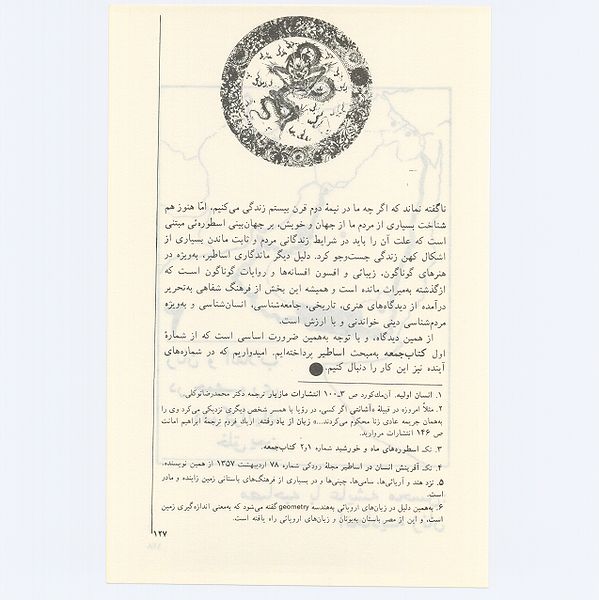 ناگفته نماند که اگر چه ما در نیمهٔ دوم قرن بیستم زندگی می‌کنیم، امّا هنوز هم
شناخت بسیاری از مردم ما از جهان و خویش، بر جهان‌بینی اسطوره‌ئی مبتنی
است که علت آن را باید در شرایط زندگانی مردم و ثابت ماندن بسیاری از
اشکال کهن زندگی جست‌وجو کرد. دلیل دیگر ماندگاری اساطیر، به‌ویژه در
هنرهای گوناگون، زیبائی و افسون افسانه‌ها و روایات گوناگون است که
ازگذشته به‌میراث مانده است و همیشه این بخش از فرهنگ شفاهی به‌تحریر
درآمده از دیدگاه‌های هنری، تاریخی، جامعه‌شناسی، انسان‌شناسی و به‌ویژه
مردم‌شناسی دینی خواندنی و با ارزش است.
از همین دیدگاه، و با توجه به‌همین ضرورت اساسی است که از شمارهٔ
اول کتاب‌جمعه به‌مبحث اساطیر پرداخته‌ایم. امیدواریم که در شماره‌های
آینده نیز این کار را دنبال کنیم.
۱. انسان اولیه. آن‌مك‌کورد ص ۳ـ۱۰۰ انتشارات مازیار ترجمه دکتر محمدرضاتوکلی.
۲. مثلاً امروزه در قبیلهٔ «آشانتی اگر کسی، در رؤیا با همسر شخص دیگری نزدیکی می‌کرد وی را
به‌همان جریمه عادی زنا محکوم می‌کردند...» زبان از یاد رفته. اریك فردم ترجمهٔ ابراهیم امانت
ص ۱۴۶ انتشارات مروارید.
۳. نک اسطوره‌های ماه و خورشید شماره ۱و۲ کتاب‌جمعه.
۴. نک آفرینش انسان در اساطیر مجلهٔ رودکی شماره ۷۸ اردیبهشت ۱۳۵۷ از همین نویسنده.
۵. نزد هند و آریائی‌ها، سامی‌ها، چینی‌ها و در بسیاری از فرهنگ‌های باستانی زمین زاینده و مادر
است.
۶. به‌همین دلیل در زبان‌های اروپائی به‌هندسه geometry گفته می‌شود که به‌معنی اندازه‌گیری زمین
است، و این از مصر باستان به‌یونان و زبان‌های اروپائی راه یافته است.
۱۲۷